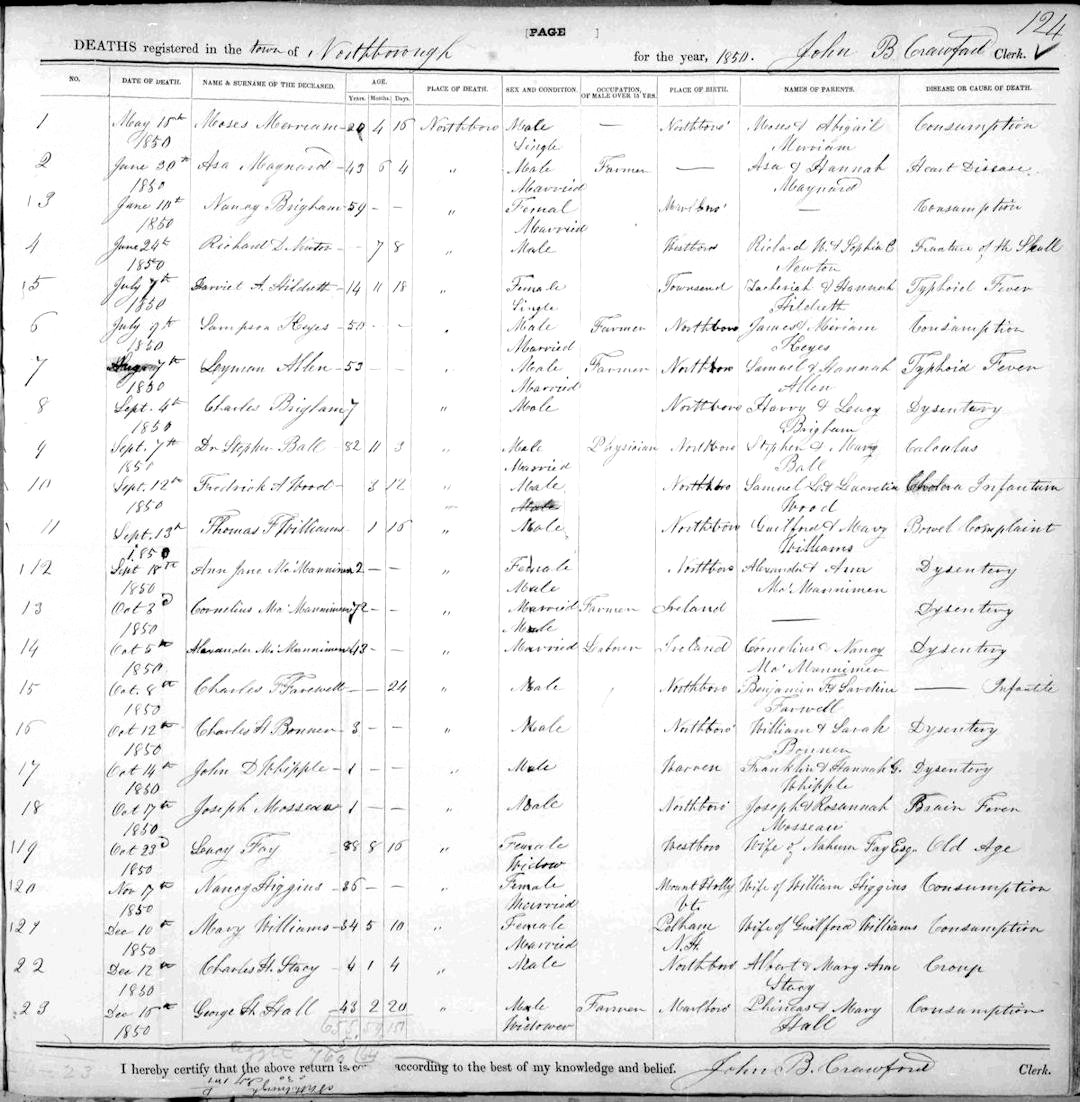 [PAGE ]
124
DEATHS registered in the town of Northborough for the year, 1850. John B Crawford Clerk.
NO. DATE OF DEATH. NAME & SURNAME OF THE DECEASED. AGE. PLACE OF DEATH. SEX AND CONDITION. OCCUPATION, OF MALE OVER 15 YRS. PLACE OF BIRTH. NAMES OF PARENTS. DISEASE OR CAUSE OF DEATH.
Years. Months. Days.
1 May 15th Moses Merriam 20 4 16 Northboro Male — Northboro' Moses & Abigail Consumption
1850 Single Merriam
2 June 30th Asa Maynard 43 6 4 " Male Farmer — Asa & Hannah Heart Disease
1850 Married Maynard
3 June 10th Nancy Brigham 59 — — " Femal Marlboro' — Consumption
1850 Married
4 June 24th Richard D. Newton — 7 8 " Male Westboro Richard W. & Sophia C Fracture of the Skull
1850 Newton
5 July 7th Harriet A. Hildreth 14 11 18 " Female Townsend Zacheriah & Hannah Typhoid Fever
1850 Single Hildreth
6 July 9th Sampson Keyes 50 — — " Male Farmer Northboro James & Miriam Consumption
1850 Married Keyes
7 7th Leyman Allen 53 " Male Farmer Northboro Samuel & Hannah Typhoid Fever
1850 Married Allen
8 Sept. 4th Charles Brigham 7 " Male Northboro Harry & Leucy Dysentary
1850 Brigham
9 Sept. 7th Dr Stephen Ball 82 11 3 " Male Physician Northboro Stephen & Mary Calculus
1850 Married Ball
10 Sept. 12th Fredrick A Wood 3 12 " Male Northboro Samuel L. & Lucretia Cholera Infantum
1850 Wood
11 Sept. 13th Thomas F Williams 1 16 " Male Northboro Guilford & Mary Bowel Complaint
1850 Williams
12 Sept 18th Ann Jane Mc Mannimen 2 — " Female Northboro Alexander & Ann Dysentery
1850 Male Mc Mannimen
13 Oct 3d Cornelius Mc Mannimen 72 — " Married Farmer Ireland — Dysentery
1850 Male
14 Oct 5th Alexander Mc Mannimen 43 — " Married Laborer Ireland Cornelius & Nancy Dysentery
1850 Mc Mannimen
15 Oct. 8th Charles F Farewell — — 24 " Male Northboro Benjamin F & Caroline — Infantile
1850 Farwell
16 Oct 12th Charles H Bonner 3 — — " Male Northboro' William & Sarah Dysentery
1850 Bonner
17 Oct 14th John D Whipple 1 — — " Male Warren Franklin & Hannah G. Dysentery
1850 Whipple
18 Oct 17th Joseph Mosseau 1 — — " Male Northboro' Joseph & Rosannah Brain Fever
1850 Mosseau
19 Oct 23d Leucy Fay 88 8 16 " Female Westboro Wife of Nahum Fay Esq. Old Age
1850 Widow
20 Nov 17th Nancy Higgins 36 — — " Female Mount Holly Wife of William Higgins Consumption
1850 Married Vt.
21 Dec 10th Mary Williams 34 5 10 " Female Pelham Wife of Guilford Williams Consumption
1850 Married N.H.
22 Dec 12th Charles H. Stacy 4 1 4 " Male Northboro Albert & Mary Ann Croup
1850 Stacy
23 Dec 16th George H. Hall 43 2 20 " Male Farmer Marlboro Phineas & Mary Consumption
1850 Widower Hall
23
I hereby certify that the above return is according to the best of my knowledge and belief. John B. Crawford Clerk.